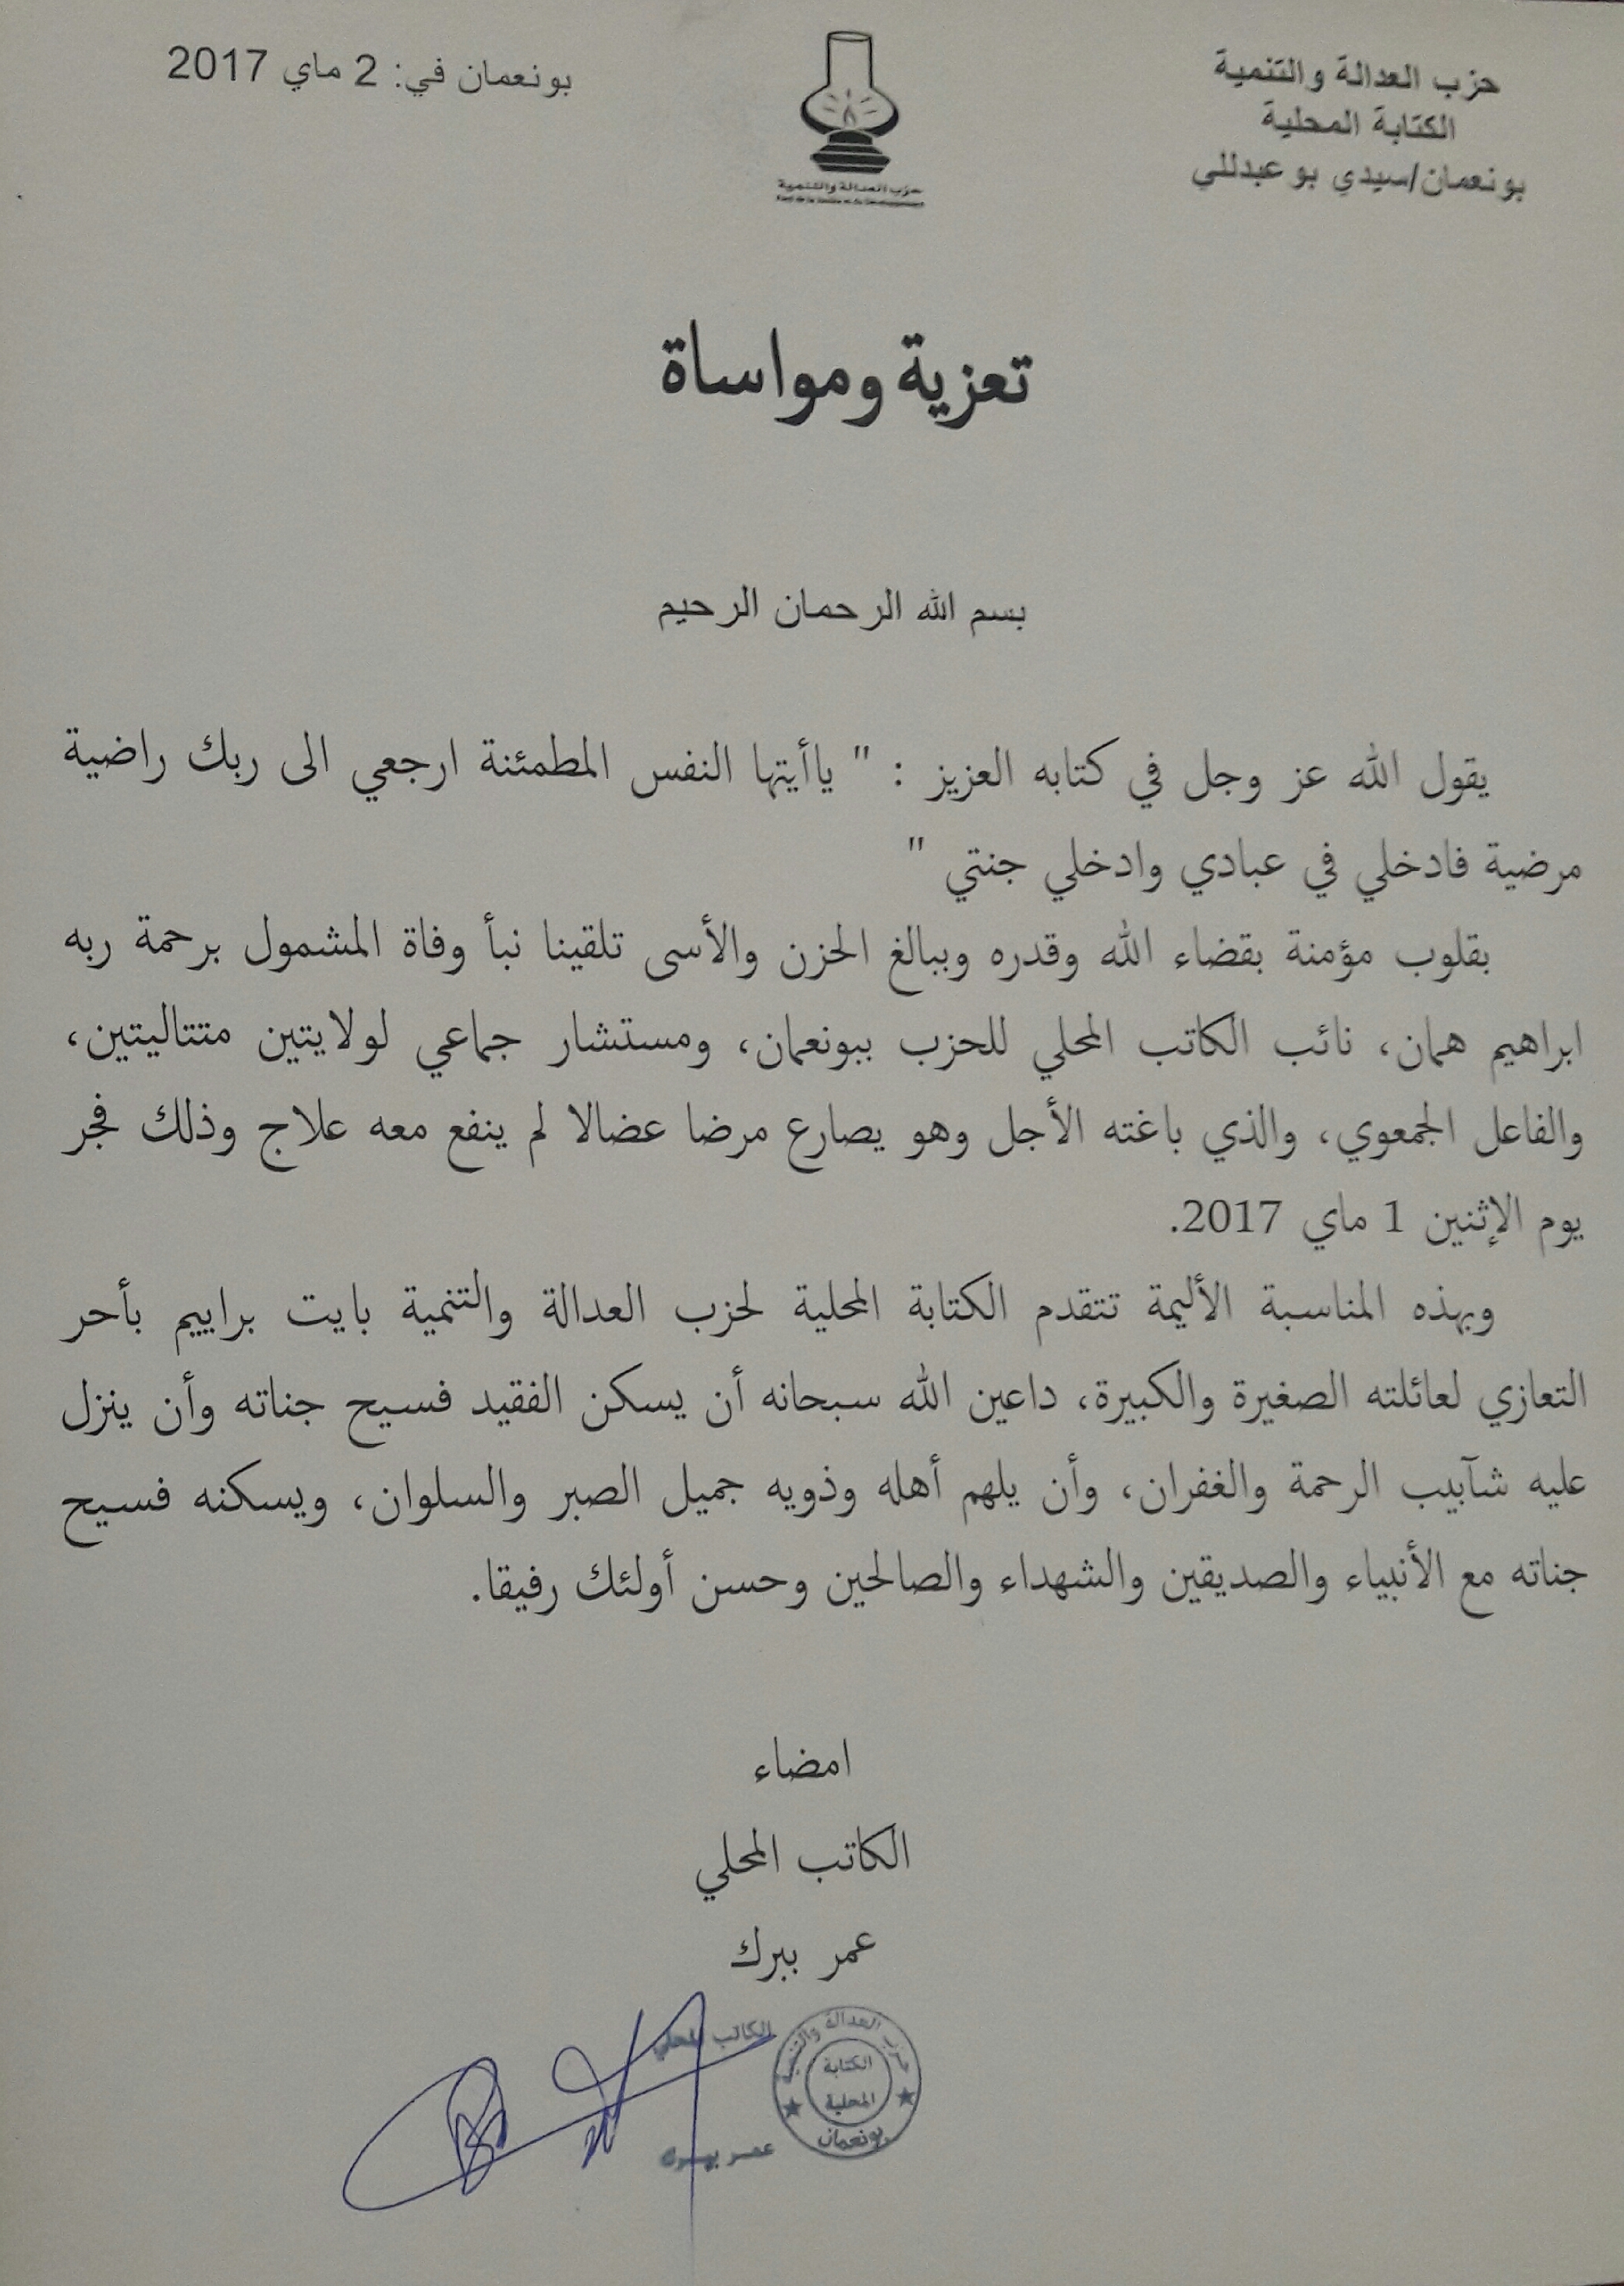 حزب العدالة والتنمية
الكتابة المحلية
بونعمان/سيدي بوعبدللي
بونعمان في: 2 ماي 2017
حزب العدالة والتنمية
Parti de la Justice et du Développement
تعزية ومواساة
بسم الله الرحمان الرحيم
يقول الله عز وجل في كتابه العزيز : " ياأيتها النفس المطمئنة ارجعي الى ربك راضية
مرضية فادخلي في عبادي وادخلي جنتي "
بقلوب مؤمنة بقضاء الله وقدره وببالغ الحزن والأسى تلقينا نبأ وفاة المشمول برحمة ربه
ابراهيم همان، نائب الكاتب المحلي للحزب ببونعمان، ومستشار جماعي لولايتين متتاليتين،
والفاعل الجمعوي، والذي باغته الأجل وهو يصارع مرضا عضالا لم ينفع معه علاج وذلك فجر
يوم الإثنين 1 ماي 2017.
وبهذه المناسبة الأليمة تتقدم الكتابة المحلية لحزب العدالة والتنمية بايت براييم بأحر
التعازي لعائلته الصغيرة والكبيرة، داعين الله سبحانه أن يسكن الفقيد فسيح جناته وأن ينزل
عليه شآبيب الرحمة والغفران، وأن يلهم أهله وذويه جميل الصبر والسلوان، ويسكنه فسيح
جناته مع الأنبياء والصديقين والشهداء والصالحين وحسن أولئك رفيقا.
امضاء
الكاتب المحلي
عمر ببرك
حزب العدالة والتنمية
الكتابة
المحلية
بونعمان
الكاتب المحلي
عمر